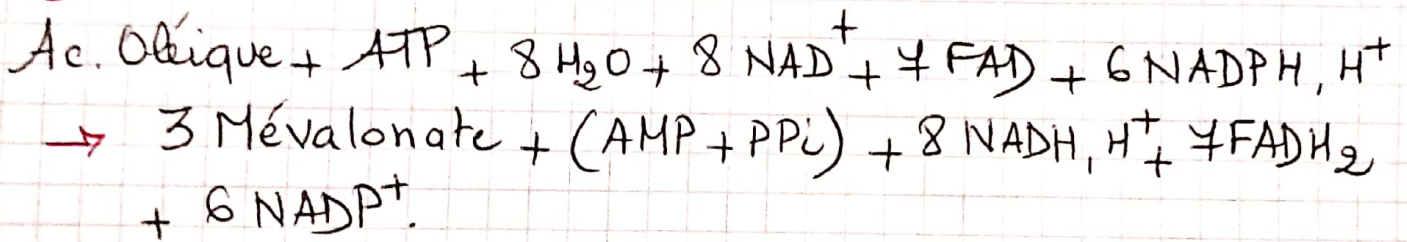 Ac. Oléique + ATP + 8 H₂O + 8 NAD⁺ + 7 FAD + 6 NADPH, H⁺
→ 3 Mévalonate + (AMP + PPi) + 8 NADH, H⁺ + 7 FADH₂
+ 6 NADP⁺.